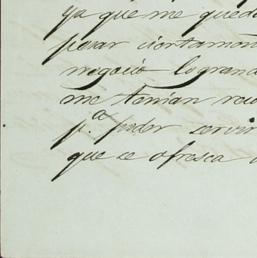 ya que me queda
pesar ciertamen
negocio logrand
me tenian rec
p.ª poder servir
que se ofresca